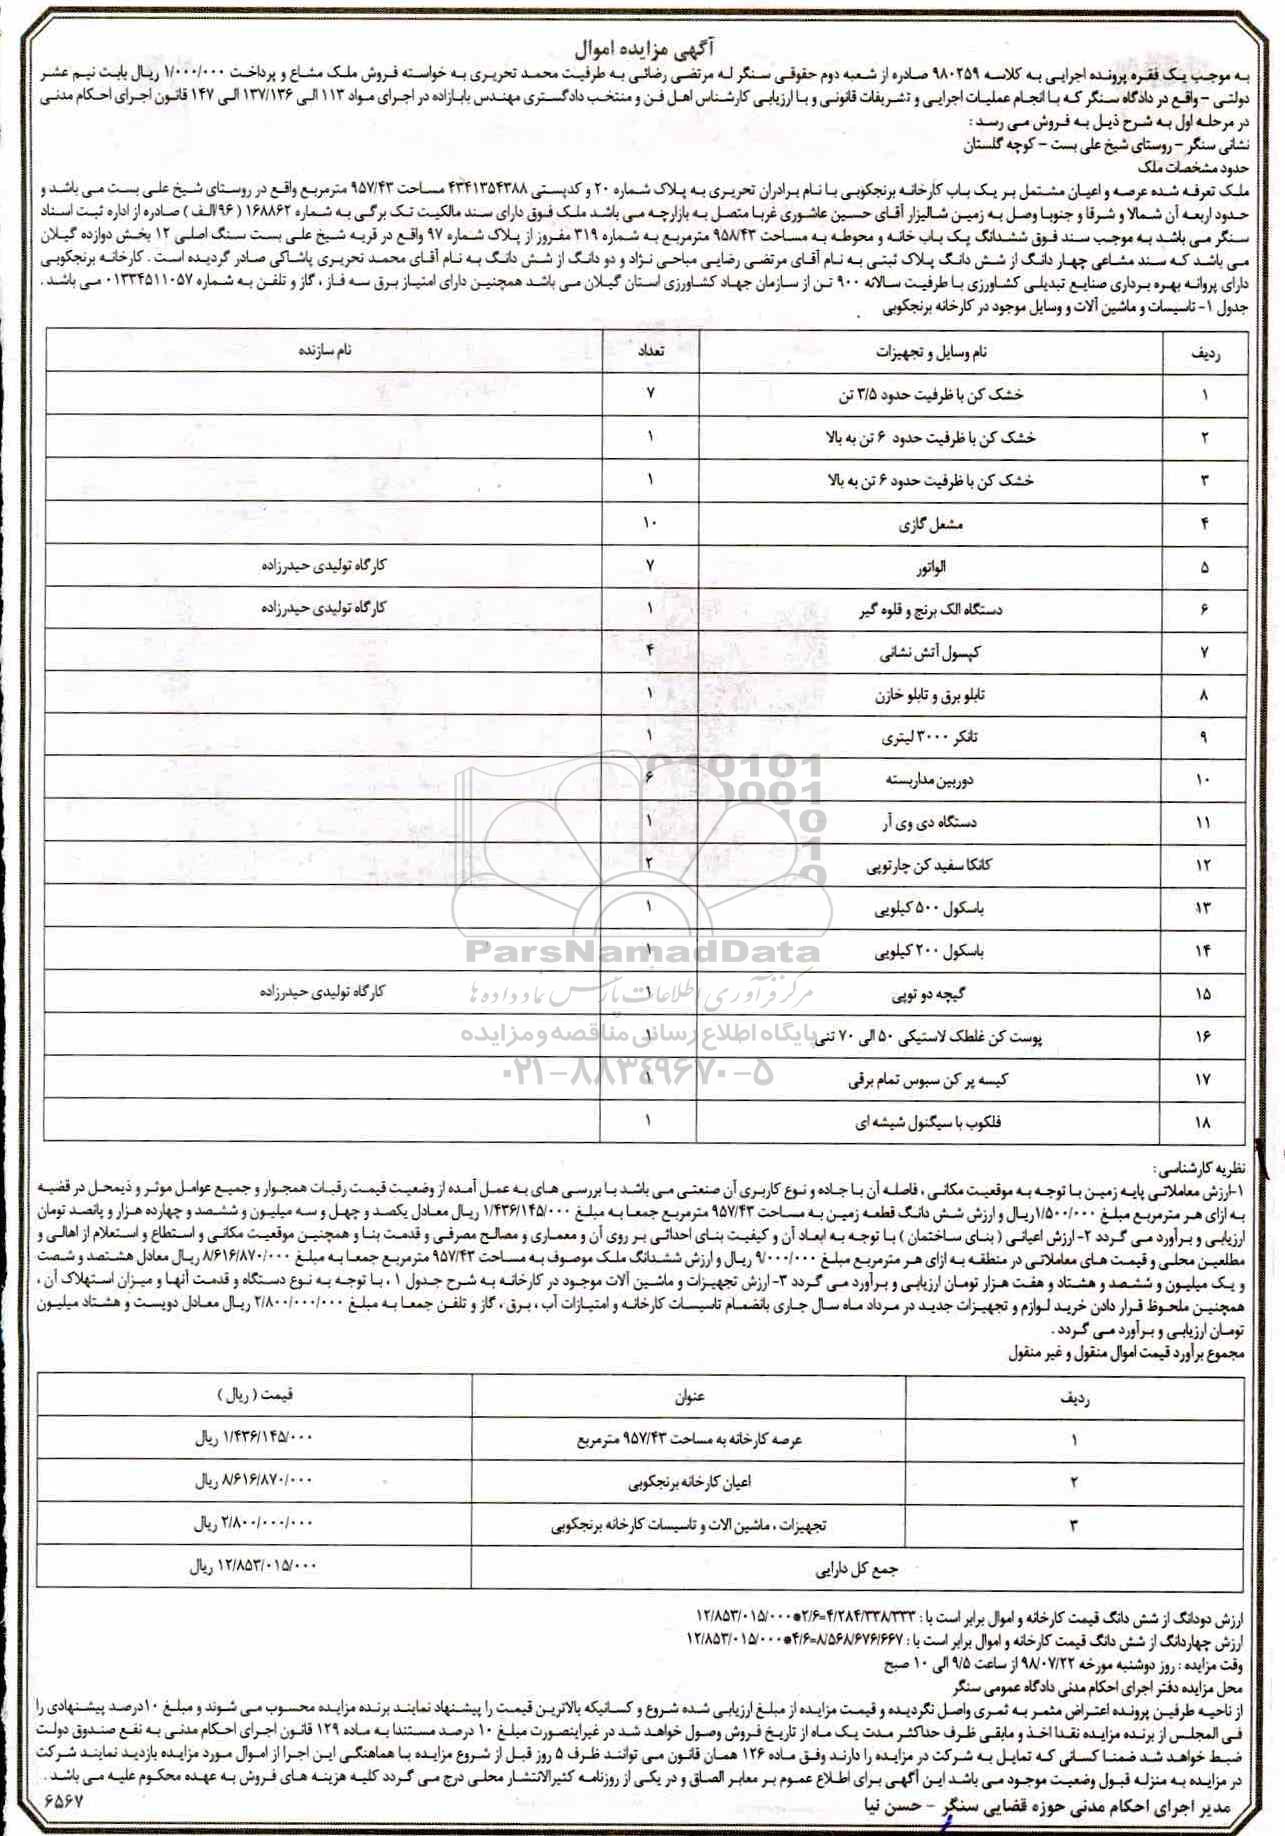 آگهی مزایده اموال
به موجب یک فقره پرونده اجرایی به کلاسه ۹۸۰۲۵۹ صادره از شعبه دوم حقوقی سنگر له مرتضی رضائی به طرفیت محمد تحریری به خواسته فروش ملک مشاع و پرداخت ۱/۰۰۰/۰۰۰ ریال بابت نیم عشر
دولتی - واقع در دادگاه سنگر که با انجام عملیات اجرایی و تشریفات قانونی و با ارزیابی کارشناس اهل فن و منتخب دادگستری مهندس بابازاده در اجرای مواد ۱۱۳ الی ۱۳۷/۱۳۶ الی ۱۴۷ قانون اجرای احکام مدنی
در مرحله اول به شرح ذیل به فروش می رسد :
نشانی سنگر - روستای شیخ علی بست - کوچه گلستان
حدود مشخصات ملک
ملک تعرفه شده عرصه و اعیان مشتمل بر یک باب کارخانه برنجکوبی با نام برادران تحریری به پلاک شماره ۲۰ و کدپستی ۴۳۴۱۳۵۴۳۸۸ مساحت ۹۵۷/۴۳ مترمربع واقع در روستای شیخ علی بست می باشد و
حدود اربعه آن شمالا و شرقا و جنوبا وصل به زمین شالیزار آقای حسین عاشوری غربا متصل به بازارچه می باشد ملک فوق دارای سند مالکیت تک برگی به شماره ۱۶۸۸۶۲ ( ۹۶/الف ) صادره از اداره ثبت اسناد
سنگر می باشد به موجب سند فوق ششدانگ یک باب خانه و محوطه به مساحت ۹۵۸/۴۳ مترمربع به شماره ۳۱۹ مفروز از پلاک شماره ۹۷ واقع در قریه شیخ علی بست سنگ اصلی ۱۲ بخش دوازده گیلان
می باشد که سند مشاعی چهار دانگ از شش دانگ پلاک ثبتی به نام آقای مرتضی رضایی مباحی نژاد و دو دانگ از شش دانگ به نام آقای محمد تحریری پاشاکی صادر گردیده است . کارخانه برنجکوبی
دارای پروانه بهره برداری صنایع تبدیلی کشاورزی با ظرفیت سالانه ۹۰۰ تن از سازمان جهاد کشاورزی استان گیلان می باشد همچنین دارای امتیاز برق سه فاز ، گاز و تلفن به شماره ۰۱۳۳۴۵۱۱۰۵۷ می باشد .
جدول ۱- تاسیسات و ماشین آلات و وسایل موجود در کارخانه برنجکوبی
ردیف نام وسایل و تجهیزات تعداد نام سازنده
۱ خشک کن با ظرفیت حدود ۳/۵ تن ۷
۲ خشک کن با ظرفیت حدود ۶ تن به بالا ۱
۳ خشک کن با ظرفیت حدود ۶ تن به بالا ۱
۴ مشعل گازی ۱۰
۵ الواتور ۷ کارگاه تولیدی حیدرزاده
۶ دستگاه الک برنج و قلوه گیر ۱ کارگاه تولیدی حیدرزاده
۷ کپسول آتش نشانی ۴
۸ تابلو برق و تابلو خازن ۱
۹ تانکر ۳۰۰۰ لیتری ۱
۱۰ دوربین مداربسته ۶
۱۱ دستگاه دی وی آر ۱
۱۲ کانکا سفید کن چارتوپی ۲
۱۳ باسکول ۵۰۰ کیلویی ۱
۱۴ باسکول ۲۰۰ کیلویی ۱
ParsNamadData
۱۵ گیچه دو توپی ۱ کارگاه تولیدی حیدرزاده
مرکز فرآوری اطلاعات پارس نماد داده ها
۱۶ پوست کن غلطک لاستیکی ۵۰ الی ۷۰ تنی ۱
پایگاه اطلاع رسانی مناقصه و مزایده
۱۷ کیسه پر کن سبوس تمام برقی ۱
۰۲۱-۸۸۳۴۹۶۷۰-۵
۱۸ فلکوب با سیگنول شیشه ای ۱
نظریه کارشناسی :
۱-ارزش معاملاتی پایه زمین با توجه به موقعیت مکانی ، فاصله آن با جاده و نوع کاربری آن صنعتی می باشد با بررسی های به عمل آمده از وضعیت قیمت رقبات همجوار و جمیع عوامل موثر و ذیمحل در قضیه
به ازای هر مترمربع مبلغ ۱/۵۰۰/۰۰۰ریال و ارزش شش دانگ قطعه زمین به مساحت ۹۵۷/۴۳ مترمربع جمعا به مبلغ ۱/۴۳۶/۱۴۵/۰۰۰ ریال معادل یکصد و چهل و سه میلیون و ششصد و چهارده هزار و پانصد تومان
ارزیابی و برآورد می گردد ۲- ارزش اعیانی ( بنای ساختمان ) با توجه به ابعاد آن و کیفیت بنای احداثی بر روی آن و معماری و مصالح مصرفی و قدمت بنا و همچنین موقعیت مکانی و استطاع و استعلام از اهالی و
مطلعین محلی و قیمت های معاملاتی در منطقه به ازای هر مترمربع مبلغ ۹/۰۰۰/۰۰۰ ریال و ارزش ششدانگ ملک موصوف به مساحت ۹۵۷/۴۳ مترمربع جمعا به مبلغ ۸/۶۱۶/۸۷۰/۰۰۰ ریال معادل هشتصد و شصت
و یک میلیون و ششصد و هشتاد و هفت هزار تومان ارزیابی و برآورد می گردد ۳- ارزش تجهیزات و ماشین آلات موجود در کارخانه به شرح جدول ۱ ، با توجه به نوع دستگاه و قدمت آنها و میزان استهلاک آن ،
همچنین ملحوظ قرار دادن خرید لوازم و تجهیزات جدید در مرداد ماه سال جاری بانضمام تاسیسات کارخانه و امتیازات آب ، برق ، گاز و تلفن جمعا به مبلغ ۲/۸۰۰/۰۰۰/۰۰۰ ریال معادل دویست و هشتاد میلیون
تومان ارزیابی و برآورد می گردد .
مجموع برآورد قیمت اموال منقول و غیر منقول
ردیف عنوان قیمت ( ریال )
۱ عرصه کارخانه به مساحت ۹۵۷/۴۳ مترمربع ۱/۴۳۶/۱۴۵/۰۰۰ ریال
۲ اعیان کارخانه برنجکوبی ۸/۶۱۶/۸۷۰/۰۰۰ ریال
۳ تجهیزات ، ماشین الات و تاسیسات کارخانه برنجکوبی ۲/۸۰۰/۰۰۰/۰۰۰ ریال
جمع کل دارایی ۱۲/۸۵۳/۰۱۵/۰۰۰ ریال
ارزش دودانگ از شش دانگ قیمت کارخانه و اموال برابر است با : ۱۲/۸۵۳/۰۱۵/۰۰۰*۲/۶=۴/۲۸۴/۳۳۸/۳۳۳
ارزش چهاردانگ از شش دانگ قیمت کارخانه و اموال برابر است با : ۱۲/۸۵۳/۰۱۵/۰۰۰*۴/۶=۸/۵۶۸/۶۷۶/۶۶۷
وقت مزایده : روز دوشنبه مورخه ۹۸/۰۷/۲۲ از ساعت ۹/۵ الی ۱۰ صبح
محل مزایده دفتر اجرای احکام مدنی دادگاه عمومی سنگر
از ناحیه طرفین پرونده اعتراض مثمر به ثمری واصل نگردیده و قیمت مزایده از مبلغ ارزیابی شده شروع و کسانیکه بالاترین قیمت را پیشنهاد نمایند برنده مزایده محسوب می شوند و مبلغ ۱۰درصد پیشنهادی را
فی المجلس از برنده مزایده نقدا اخذ و مابقی ظرف حداکثر مدت یک ماه از تاریخ فروش وصول خواهد شد در غیراینصورت مبلغ ۱۰ درصد مستندا به ماده ۱۲۹ قانون اجرای احکام مدنی به نفع صندوق دولت
ضبط خواهد شد ضمنا کسانی که تمایل به شرکت در مزایده را دارند وفق ماده ۱۲۶ همان قانون می توانند ظرف ۵ روز قبل از شروع مزایده با هماهنگی این اجرا از اموال مورد مزایده بازدید نمایند شرکت
در مزایده به منزله قبول وضعیت موجود می باشد این آگهی برای اطلاع عموم بر معابر الصاق و در یکی از روزنامه کثیرالانتشار محلی درج می گردد کلیه هزینه های فروش به عهده محکوم علیه می باشد .
مدیر اجرای احکام مدنی حوزه قضایی سنگر - حسن نیا
۶۵۶۷